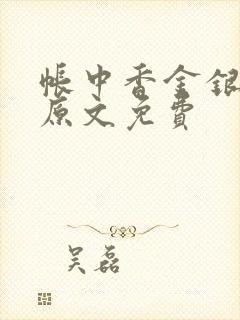 帐中香金银
原文免费
吴磊